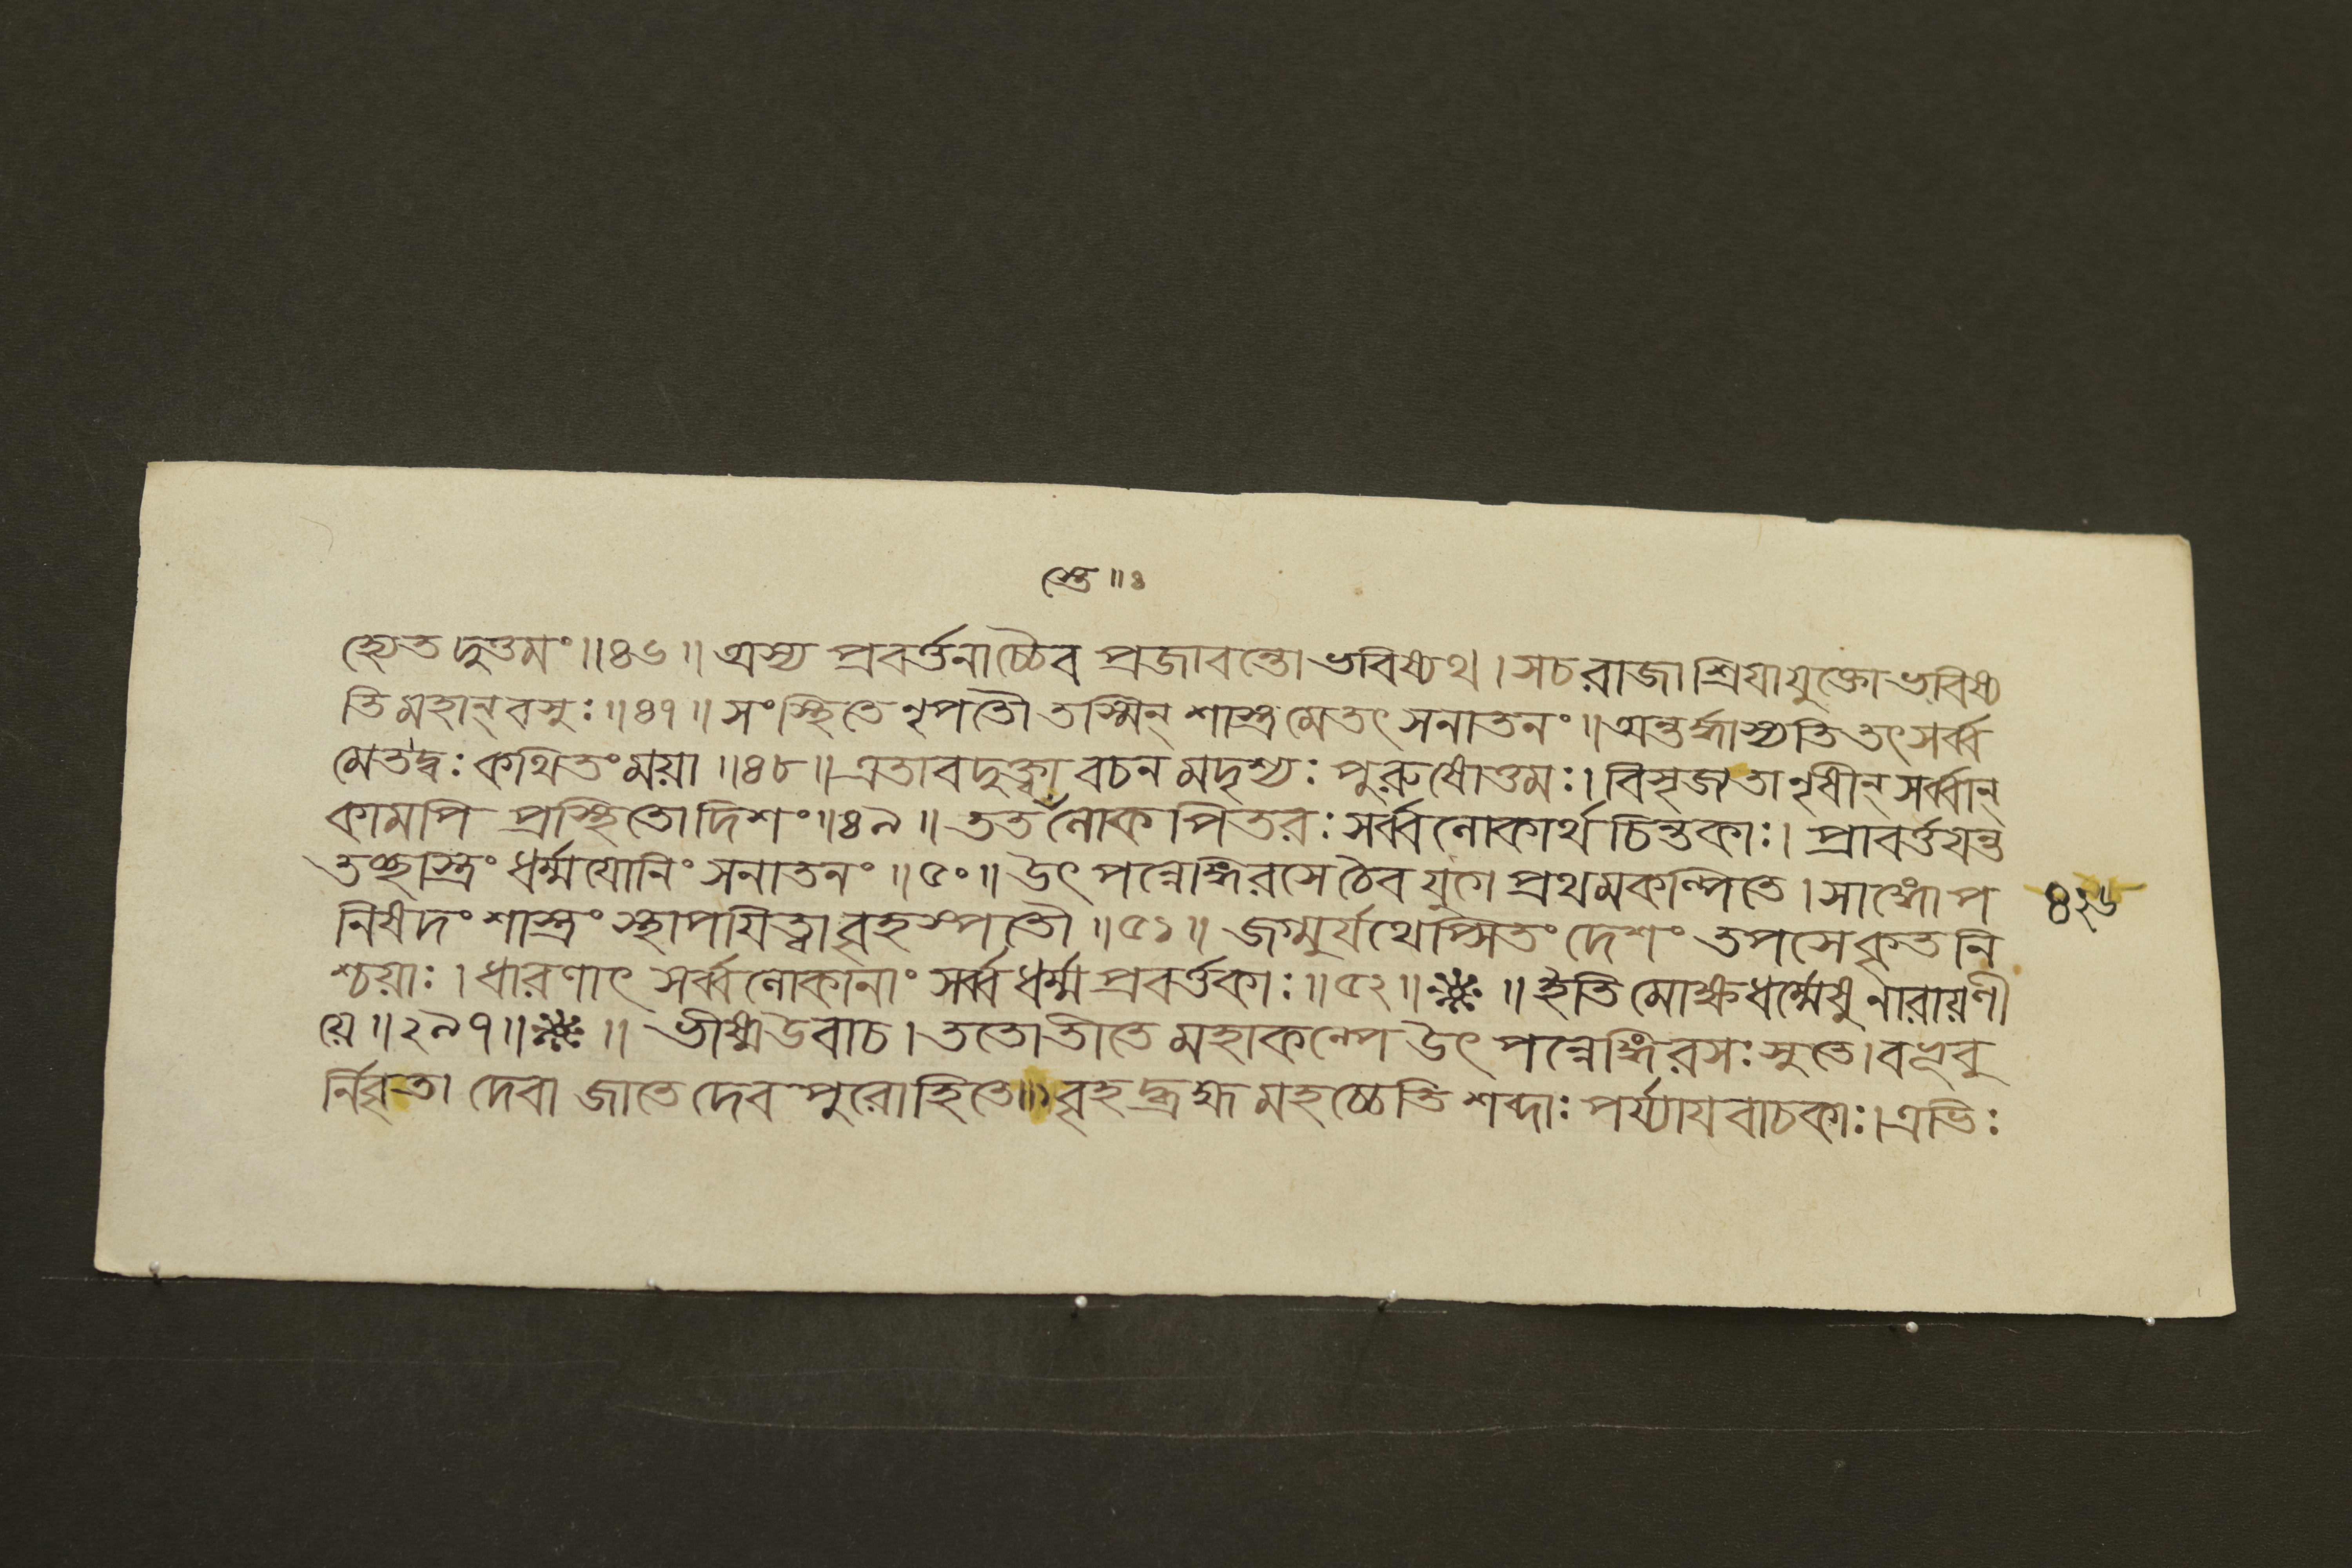 স্তে॥৪
হ্যেতদুত্তমং॥৪৬॥অস্য প্রবর্ত্তনাচ্চৈব প্রজাবন্তো ভবিষ্যথ। সচরাজা শ্রিযাযুক্তো ভবিষ্য
তি মহান্ বসুঃ॥৪৭॥ সংস্থিতে নৃপতৌ তস্মিন্ শাস্ত্রমেতৎ সনাতনং॥ অন্তর্দ্ধাস্যতি তৎ সর্ব্ব
মেতদ্বঃ কথিতং ময়া॥৪৮॥ এতাবদুক্ত্বা বচনমদৃশ্যঃ পুরুষোত্তমঃ। বিসৃজ্যতানৃষীন্ সর্ব্বান্
কামপি প্রস্থিতো দিশং॥৪৯॥ ততঁলোকপিতরঃ সর্ব্বলোকার্থচিন্তকাঃ। প্রাবর্ত্তযন্ত
তচ্ছাস্ত্রিং ধর্ম্মযোনিং সনাতনং॥৫০॥ উৎপন্নেঙ্গিরসেচৈব যুগে প্রথমকল্পিতে। সাঙ্গোপ
নিষদং শাস্ত্রং স্থাপযিত্বা বৃহস্পতৌ॥৫১॥ জগ্মুর্যথেপ্সিতং দেশং তপসে কৃতনি
শ্চয়াঃ। ধারণাৎ সর্ব্বলোকানাং সর্ব্বধর্ম্মপ্রবর্ত্তকাঃ॥৫২॥ ॥ইতি মোক্ষধর্ম্মেষু নারায়ণী
য়ে॥২৯৭॥ ॥ ভীষ্মউবাচ। ততোতীতে মহাকল্পে উৎপন্নেঙ্গিরসঃ সুতে। বভূবু
র্নিবৃতা দেবা জাতে দেবপুরোহিতে॥১ বৃহদ্ব্রহ্ম মহচ্চেতি শব্দাঃ পর্য্যাযবাচকাঃ। এভিঃ
৪২৬